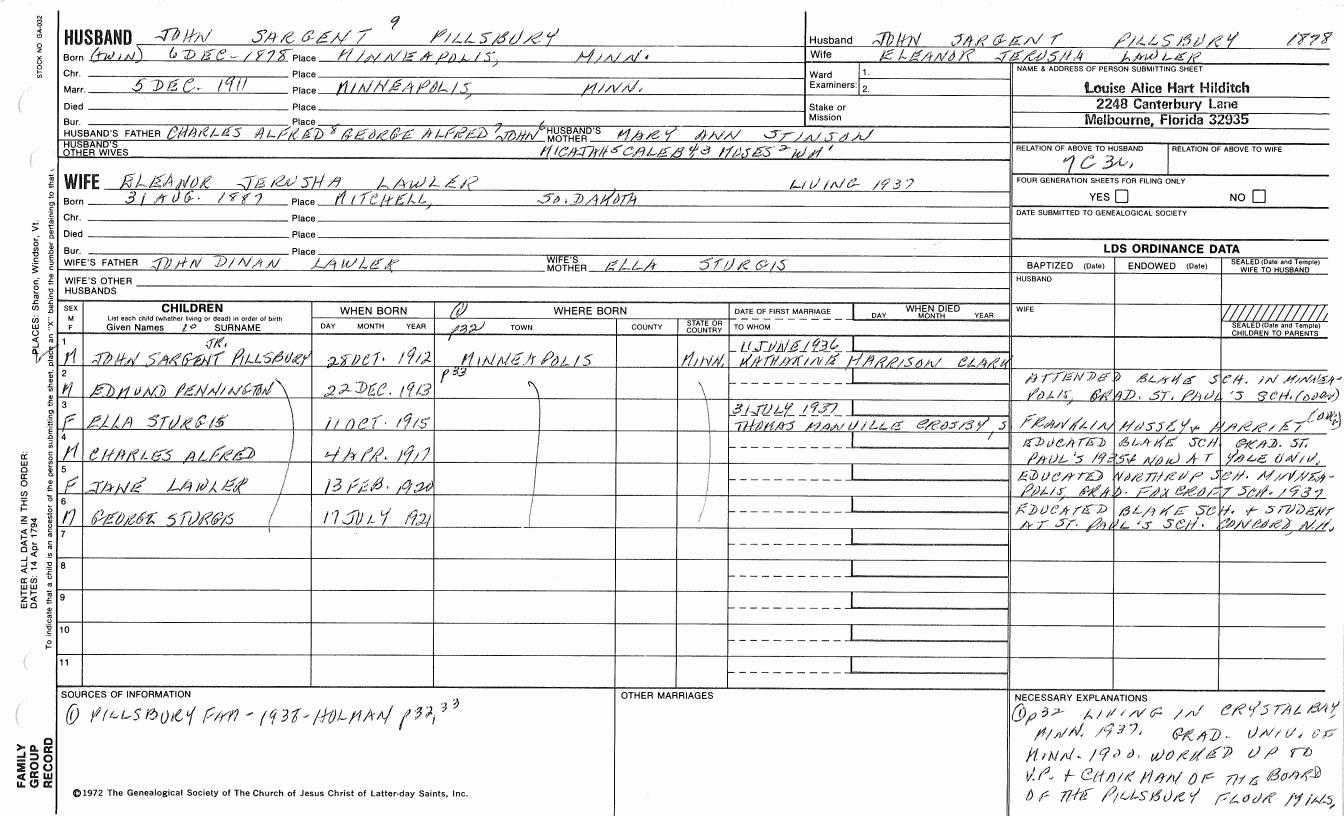 STOCK NO. GA-032
HUSBAND JOHN SARGENT 9 PILLSBURY
Born (TWIN) 6 DEC. 1878 Place MINNEAPOLIS, MINN.
Chr. Place
Marr. 5 DEC. 1911 Place MINNEAPOLIS, MINN.
Died Place
Bur. Place
HUSBAND'S FATHER CHARLES ALFRED 8 GEORGE ALFRED 7 JOHN 6 HUSBAND'S MOTHER MARY ANN STINSON
HUSBAND'S OTHER WIVES MICAJAH 5 CALEB 4 3 MOSES 2 WM 1
Husband JOHN SARGENT PILLSBURY 1878
Wife ELEANOR JERUSHA LAWLER
Ward Examiners: 1. 2.
Stake or Mission
NAME & ADDRESS OF PERSON SUBMITTING SHEET
Louise Alice Hart Hilditch
2248 Canterbury Lane
Melbourne, Florida 32935
RELATION OF ABOVE TO HUSBAND RELATION OF ABOVE TO WIFE
7C3R.
FOUR GENERATION SHEETS FOR FILING ONLY
YES NO
DATE SUBMITTED TO GENEALOGICAL SOCIETY
WIFE ELEANOR JERUSHA LAWLER LIVING 1937
Born 31 AUG. 1887 Place MITCHELL, SO. DAKOTA
Chr. Place
Died Place
Bur. Place
WIFE'S FATHER JOHN DINAN LAWLER WIFE'S MOTHER ELLA STURGIS
WIFE'S OTHER HUSBANDS
LDS ORDINANCE DATA
BAPTIZED (Date) ENDOWED (Date) SEALED (Date and Temple) WIFE TO HUSBAND
HUSBAND
WIFE
SEALED (Date and Temple) CHILDREN TO PARENTS
SEX M F CHILDREN WHEN BORN ① WHERE BORN DATE OF FIRST MARRIAGE WHEN DIED
List each child (whether living or dead) in order of birth
Given Names 10 SURNAME DAY MONTH YEAR p32 TOWN COUNTY STATE OR COUNTRY TO WHOM DAY MONTH YEAR
1 M JOHN SARGENT PILLSBURY JR. 28 OCT. 1912 MINNEAPOLIS MINN. 11 JUNE 1936 KATHARINE HARRISON CLARK
2 M EDMUND PENNINGTON 22 DEC. 1913 p33
ATTENDED BLAKE SCH. IN MINNEA-
POLIS, GRAD. ST. PAUL'S SCH.
3 F ELLA STURGIS 11 OCT. 1915 31 JULY 1937 THOMAS MANVILLE CROSBY, S FRANKLIN MUSSEY & HARRIET
4 M CHARLES ALFRED 4 APR. 1917
EDUCATED BLAKE SCH. GRAD. ST.
PAUL'S 1935 & NOW AT YALE UNIV.
5 F JANE LAWLER 13 FEB. 1920
EDUCATED NORTHRUP SCH. MINNEA-
POLIS, GRAD. FOXCROFT SCH. 1937
6 M GEORGE STURGIS 17 JULY 1921
EDUCATED BLAKE SCH. & STUDENT
AT ST. PAUL'S SCH. CONCORD, N.H.
7
8
9
10
11
SOURCES OF INFORMATION
① PILLSBURY FAM - 1938 - HOLMAN p 32, 33
OTHER MARRIAGES
NECESSARY EXPLANATIONS
① p32 LIVING IN CRYSTAL BAY,
MINN. 1937. GRAD. UNIV. OF
MINN. 1900. WORKED UP TO
V.P. & CHAIRMAN OF THE BOARD
OF THE PILLSBURY FLOUR MILLS.
©1972 The Genealogical Society of The Church of Jesus Christ of Latter-day Saints, Inc.
FAMILY GROUP RECORD
ENTER ALL DATA IN THIS ORDER:
DATES: 14 Apr 1794
PLACES: Sharon, Windsor, Vt.
To indicate that a child is an ancestor of the person submitting the sheet, place an "X" behind the number pertaining to that